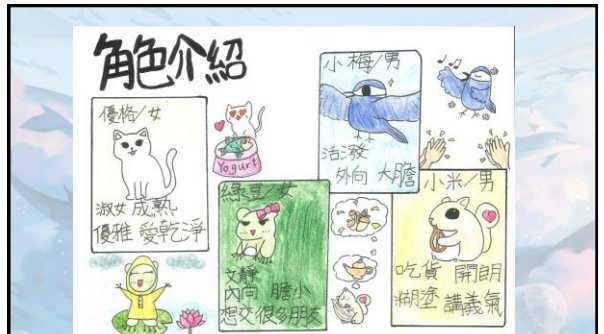 角色介紹
優格/女
淑女 成熟
優雅 愛乾淨
Yogurt
小梅/男
活潑
外向 大膽
綠豆/女
文靜
內向 膽小
想交很多朋友
小米/男
吃貨 開朗
糊塗 講義氣